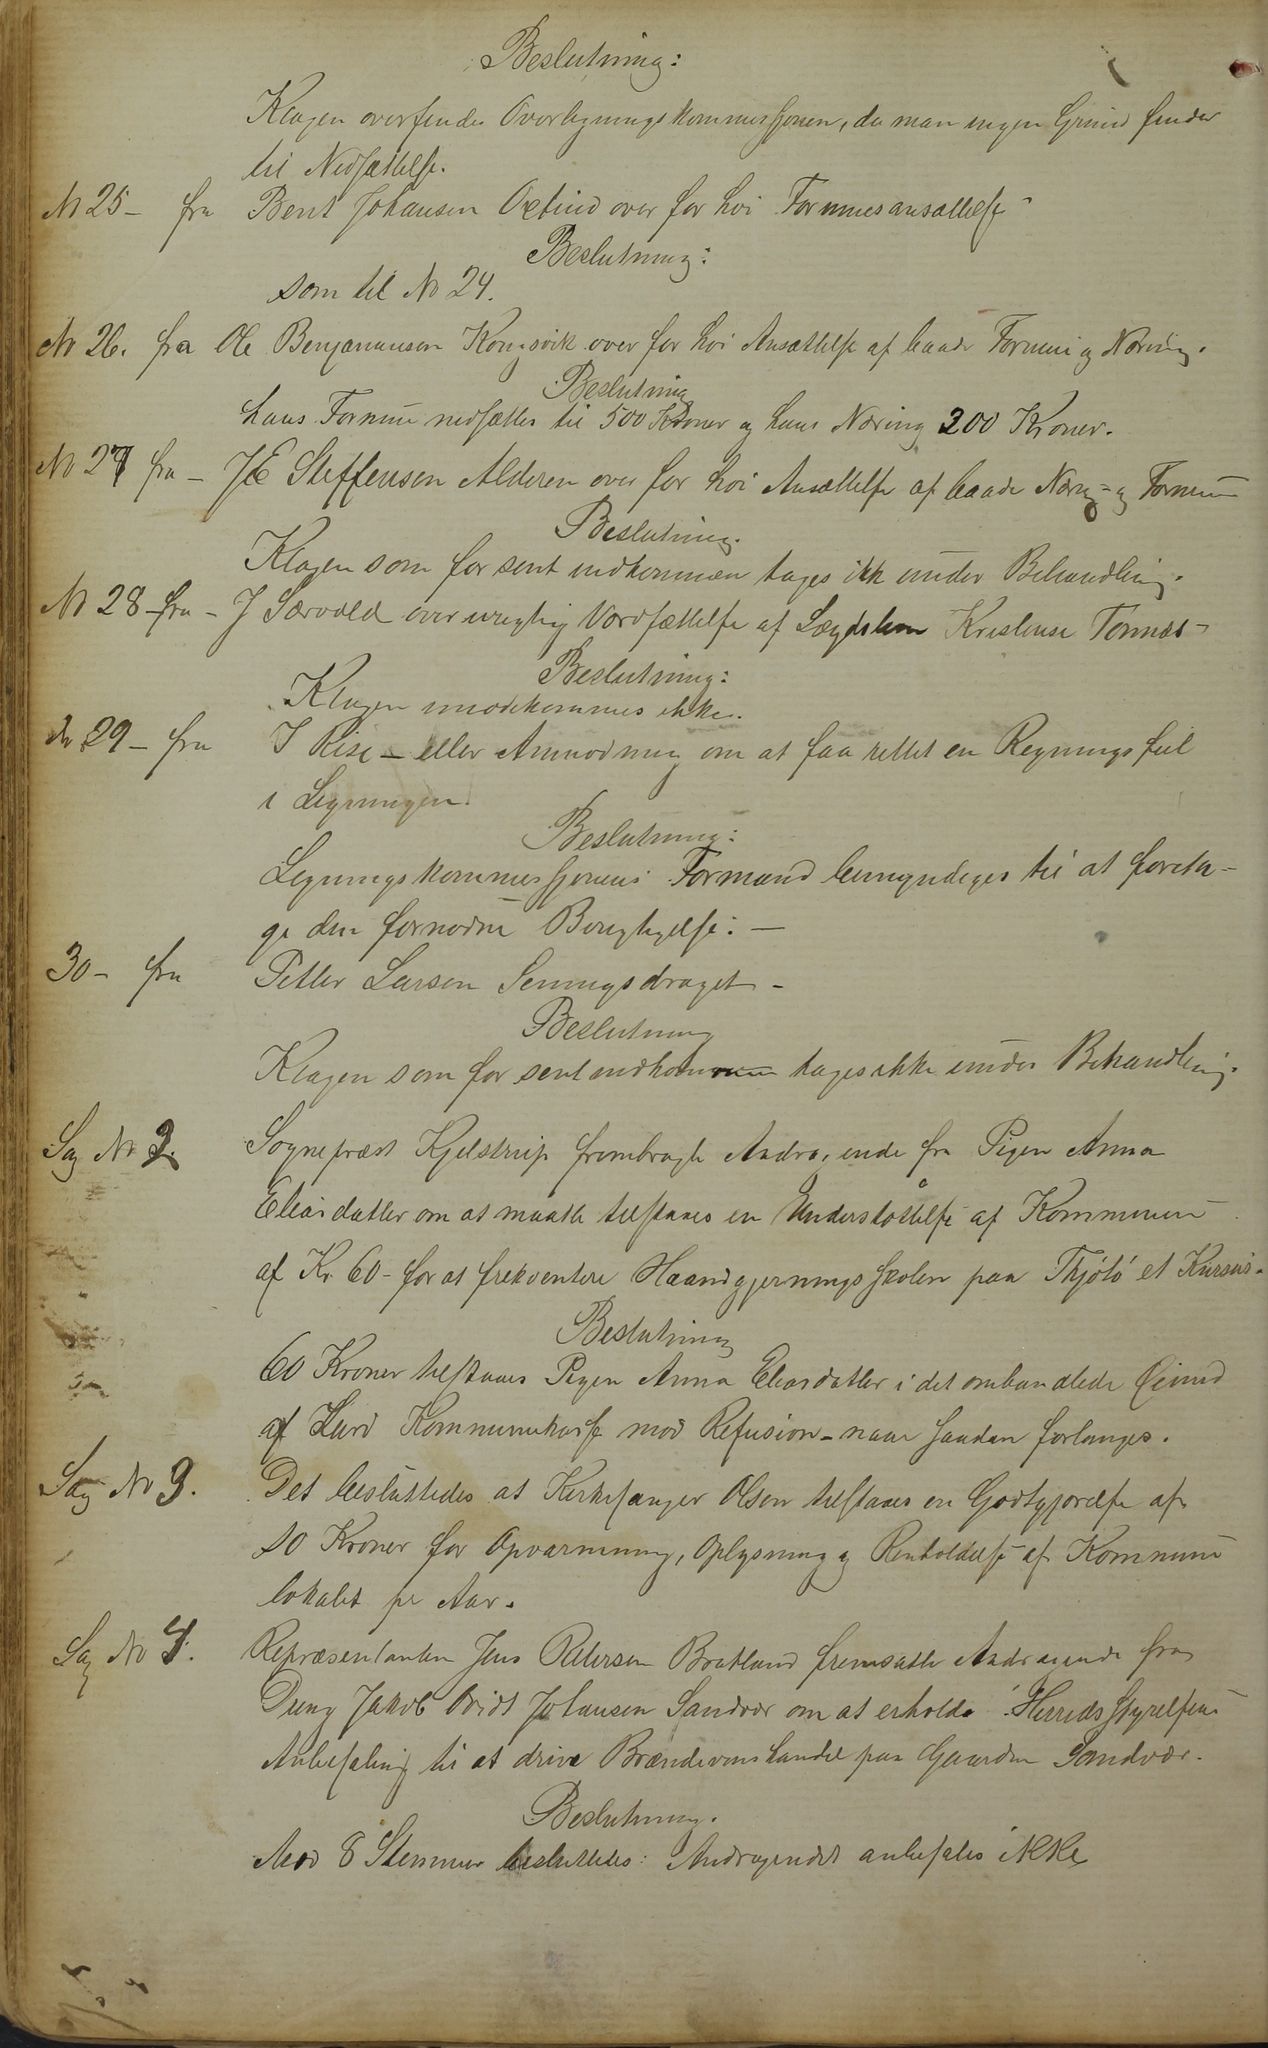 Beslutning:
Klagen oversendes Overligningskommissjonen, da man ingen Grund finder
til Nedsættelse.
No 25 – fra Bent Johansen Oxtind over for høi Formuesansættelse
Beslutning:
som til No 24.
No 26. fra Ole Benjaminsen Kongsvik over for høi Ansættelse af baade Formue og Næring.
Beslutning
hans Formue nedsættes til 500 Kroner og hans Næring 200 Kroner.
No 27 fra – J E Steffensen Alderen over for høi Ansættelse af baade Næring og Formue
Beslutning.
Klagen som for sent indkommen tages ikke under Behandling.
No 28 – fra – J Særvold over urigtig Værdsættelse af Lægdslem Kristense Tonnes –
Beslutning:
Klagen imødekommes ikke.
No 29 – fra J Rise – eller Anmodning om at faa rettet en Regningsfeil
i Ligningen.
Beslutning:
Ligningskommissjonens Formand bemyndiges til at foreta-
ge den fornødne Berigtigelse. –
30 – fra Petter Larsen Senningsdraget –
Beslutning
Klagen som for sent indkommen tages ikke under Behandling.
Sag No 2. Sognepræst Kjelstrup frembragte Andragende fra Pigen Anna
Eliasdatter om at maatte tilstaaes en Understøttelse af Kommunen
af Kr 60 – for at frekventere Haandgjerningsskolen paa Thjøtø et Kursus.
Beslutning
60 Kroner tilstaaes Pigen Anna Eliasdatter i det ombandlede Øiemed
af Lurø Kommunekasse mod Refusion – naar saadan forlanges.
Sag No 3. Det besluttedes at Kirkesanger Olsen tilstaaes en Godtgjørelse af
10 Kroner for Opvarmning, Oplysning og Renholdelse af Kommune
lokalet pr Aar.
Sag No 4. Repræsentanten Jens Petersen Bratland fremsatte Andragende fra
Dreng Jakob Johansen Sandvær om at erholde Herredsstyrelsens
Anbefaling til at drive Brændevinshandel paa Gaarden Sandvær.
Beslutning.
Mod 8 Stemmer besluttedes: Andragendet anbefales ikke